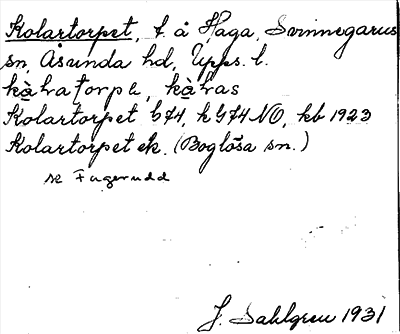 Kolartorpet, t. å Haga, Svinnegarns
sn, Åsunda hd, Upps. l.
kạ̊latorpe, kạ̊las
Kolartorpet b74, k G74 NO, kb 1923
Kolartorpet ek. (Boglösa sn.)
se Fagerudd
J. Sahlgren 1931